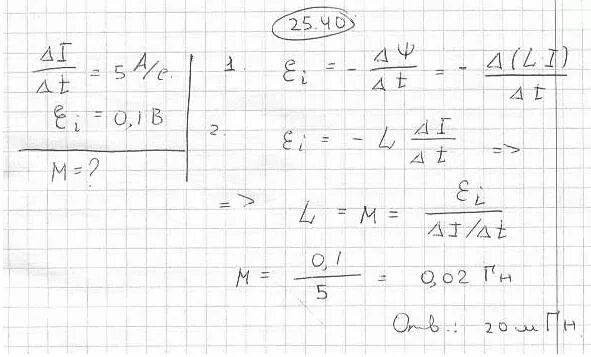 25.40
ΔI/Δt = 5 А/с.
ℰi = 0,1 В
M = ?
1. ℰi = - ΔΨ/Δt = - Δ(L I)/Δt
2. ℰi = - L ΔI/Δt =>
=> L = M = ℰi/(ΔI/Δt)
M = 0,1/5 = 0,02 Гн
Отв.: 20 мГн